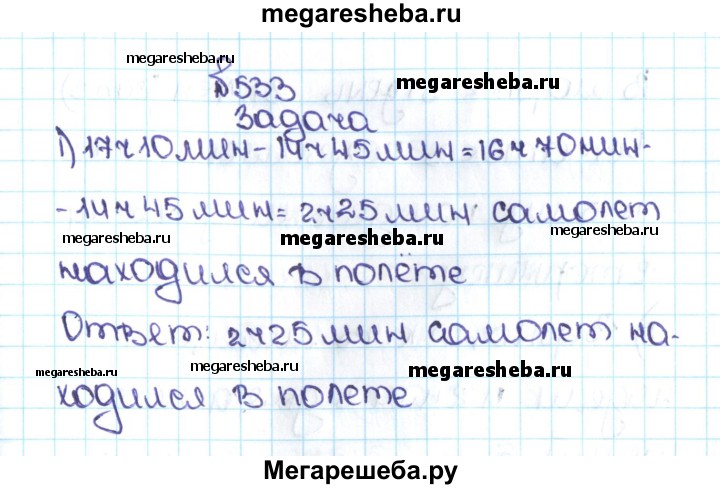 megaresheba.ru
megaresheba.ru
№533
megaresheba.ru
Задача
1) 17ч 10мин - 14ч 45мин = 16ч 70мин -
- 14ч 45мин = 2ч 25мин самолет
megaresheba.ru
megaresheba.ru
megaresheba.ru
находился в полёте
Ответ: 2ч 25мин самолет на-
megaresheba.ru
megaresheba.ru
megaresheba.ru
ходился в полете
Мегарешеба.ру